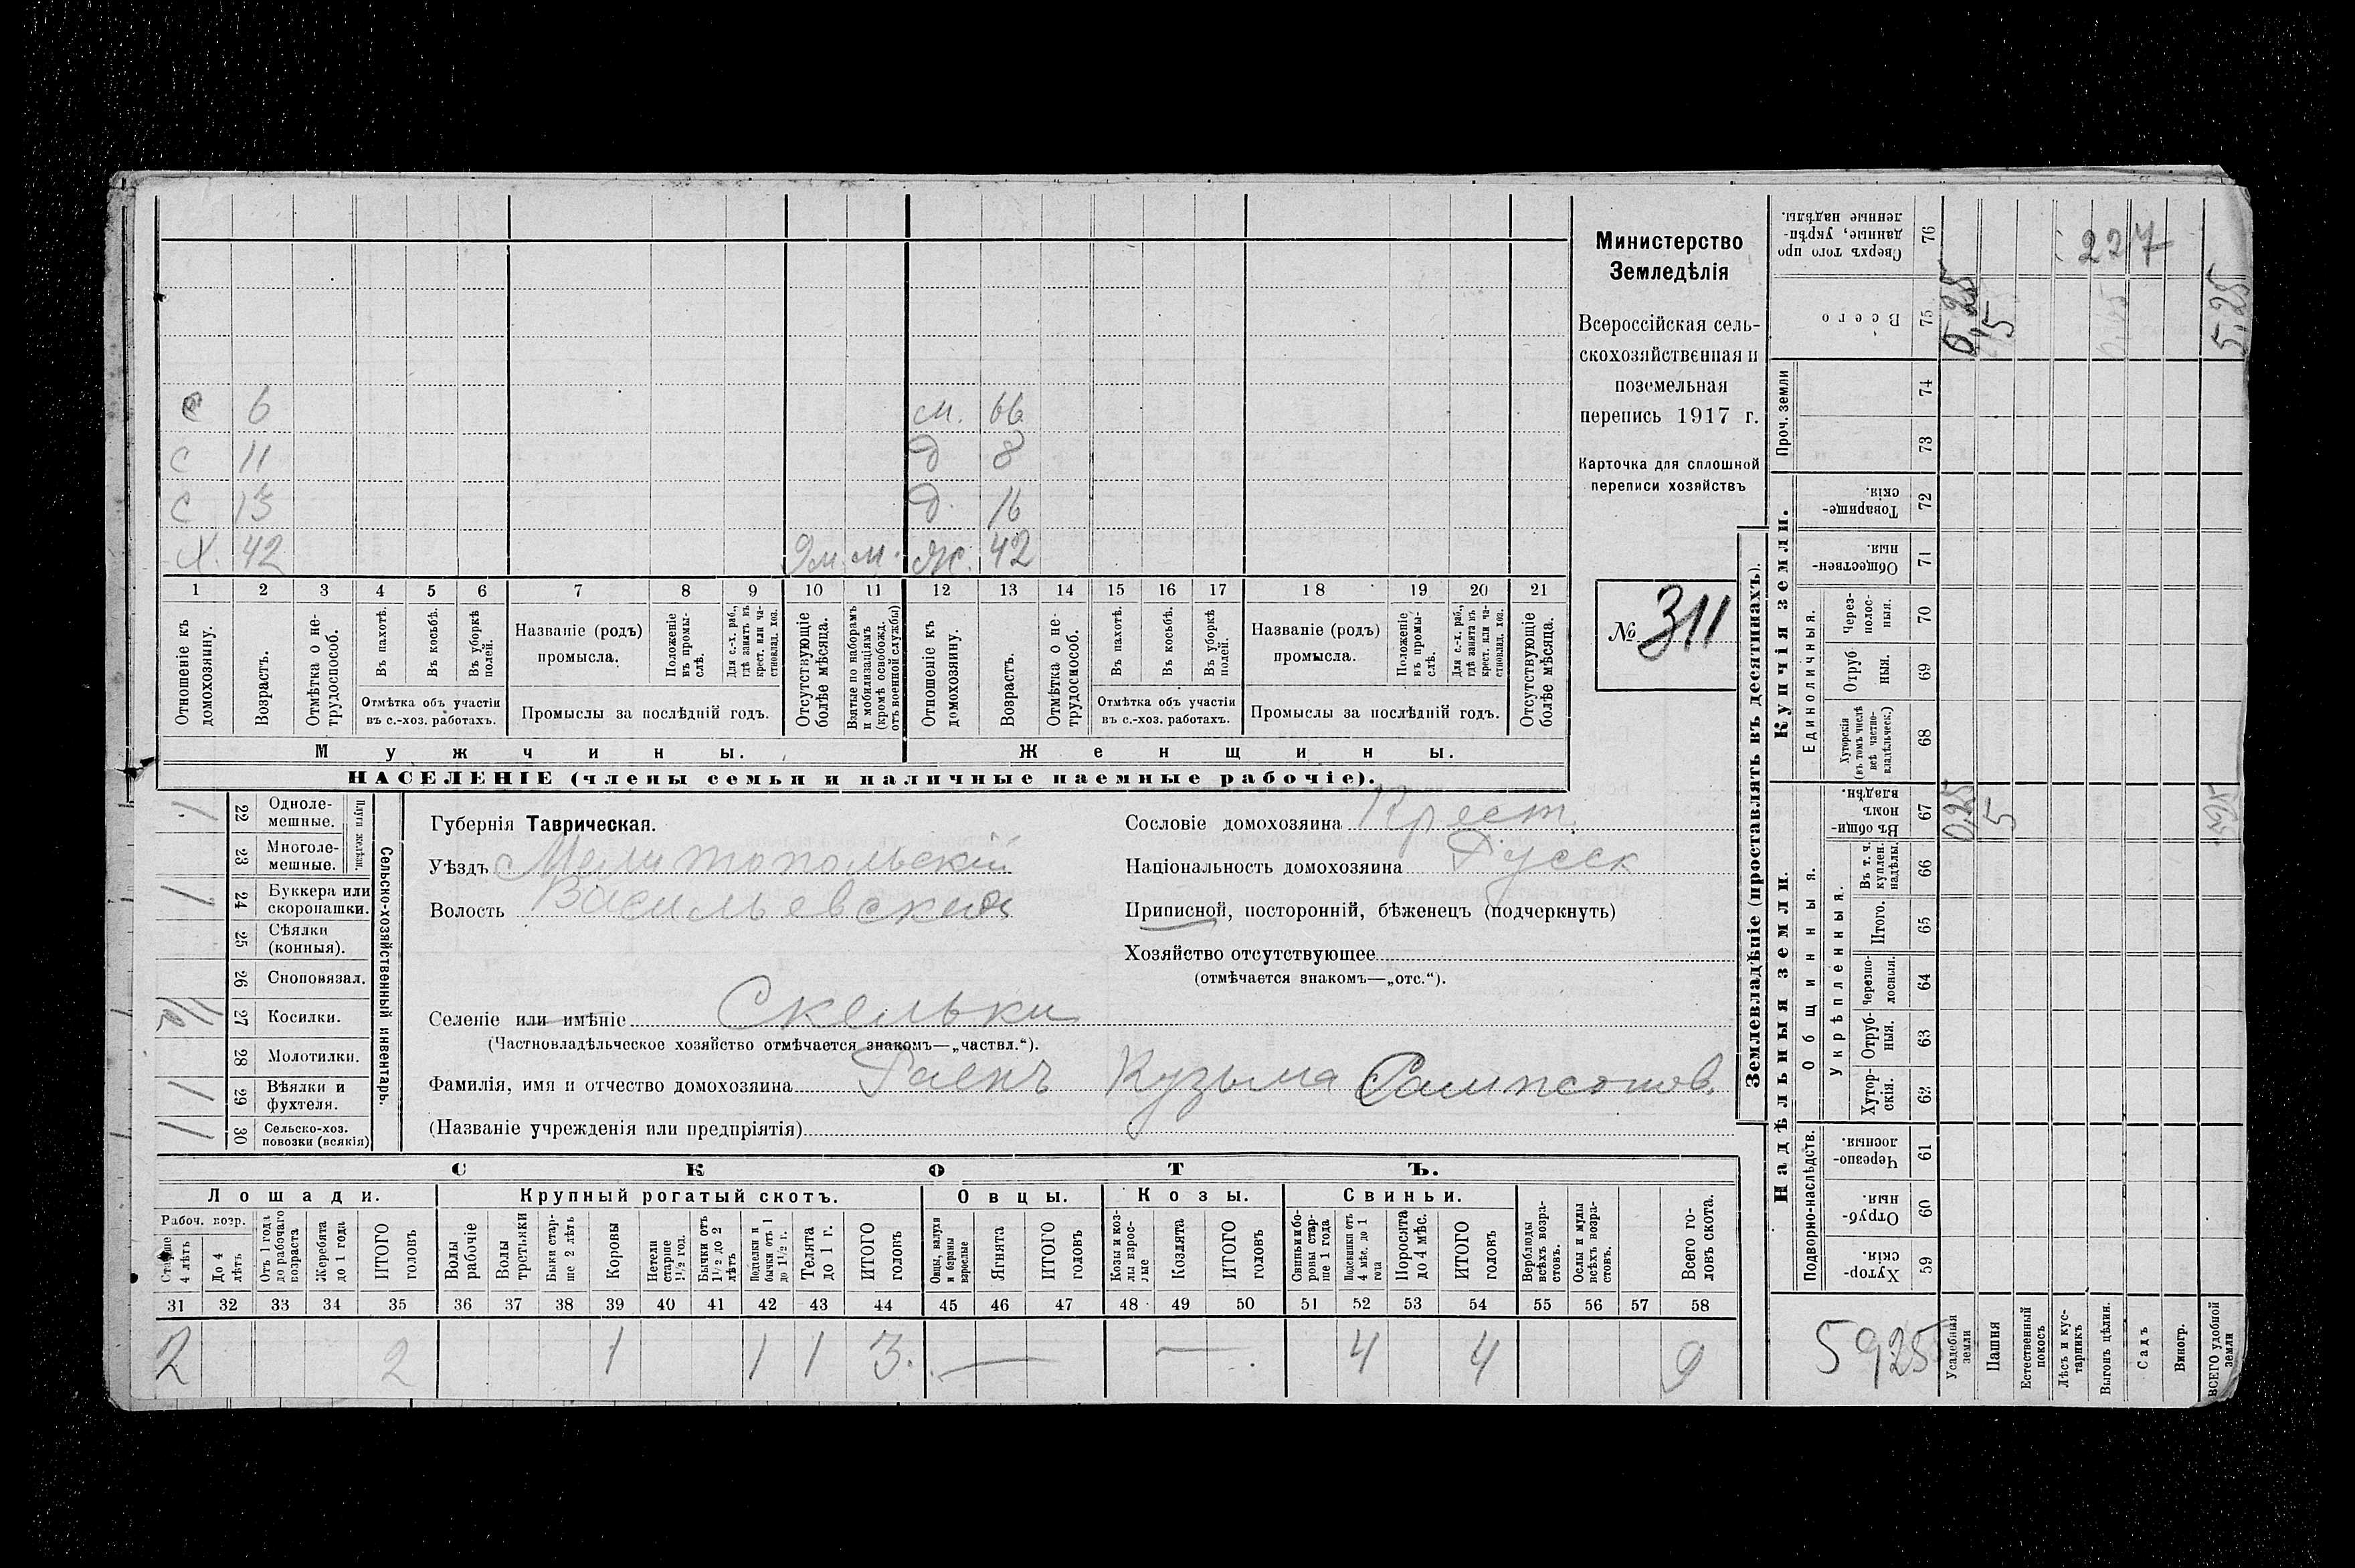 с 6 м. 66
с 11 д 8
с 13 д. 16
Х. 42 9м. м. ж. 42
1 2 3 4 5 6 7 8 9 10 11 12 13 14 15 16 17 18 19 20 21
Отношеніе къ домохозяину.
Возрастъ.
Отмѣтка о не-
трудоспособ.
Въ пахотѣ.
Въ косьбѣ.
Въ уборкѣ полей.
Отмѣтка объ участіи
въ с.-хоз. работахъ.
Названіе (родъ)
промысла.
Положеніе въ промы-
слѣ.
Для с.-х. раб., гдѣ занятъ въ крест. или ча-
стновлад. хоз.
Промыслы за послѣдній годъ.
Отсутствующіе болѣе мѣсяца.
Взятые по наборамъ и мобилизаціямъ (кромѣ освобожд. отъ военной службы)
Отношеніе къ домохозяину.
Возрастъ.
Отмѣтка о не-
трудоспособ.
Въ пахотѣ.
Въ косьбѣ.
Въ уборкѣ полей.
Отмѣтка объ участіи
въ с.-хоз. работахъ.
Названіе (родъ)
промысла.
Положеніе въ промы-
слѣ.
Для с.-х. раб., гдѣ занята въ крест. или ча-
стновлад. хоз.
Промыслы за послѣдній годъ.
Отсутствующіе болѣе мѣсяца.
Мужчины. Женщины.
НАСЕЛЕНІЕ (члены семьи и наличные наемные рабочіе).
Министерство
Земледѣлія
Всероссійская сель-
скохозяйственная и
поземельная
перепись 1917 г.
Карточка для сплошной
переписи хозяйствъ
№ 311
Сельско-хозяйственный инвентарь.
Плуги желѣзн.
22 Одноле-
мешные. 1
23 Многоле-
мешные.
24 Буккера или
скоропашки. 1
25 Сѣялки
(конныя).
26 Сноповязал.
27 Косилки.
28 Молотилки.
29 Вѣялки и
фухтеля. 1
30 Сельско-хоз.
повозки (всякія) 1
Губернія Таврическая.
Уѣздъ Мелитопольскій
Волость Васильевская
Селеніе или имѣніе Скельки
(Частновладѣльческое хозяйство отмѣчается знакомъ—„частвл.“).
Фамилія, имя и отчество домохозяина Раенъ Кузьма Сампсонов.
(Названіе учрежденія или предпріятія)
Сословіе домохозяина Крест.
Національность домохозяина Русск
Приписной, посторонній, бѣженец (подчеркнуть)
Хозяйство отсутствующее
(отмѣчается знакомъ—„отс.“).
СКОТЪ.
Лошади. Крупный рогатый скотъ. Овцы. Козы. Свиньи.
Рабоч. возр.
Старше 4 лѣтъ
До 4 лѣтъ
Отъ 1 года до рабочаго возраста
Жеребята до 1 года
ИТОГО головъ
Волы рабочіе
Волы третьяки
Быки стар-
ше 2 лѣтъ
Коровы
Нетели старше 1½ год.
Бычки отъ 1½ до 2 лѣтъ
Подтелки и бычки отъ 1 до 1½ г.
Телята до 1 г.
ИТОГО головъ
Овцы, валухи и бараны взрослые
Ягнята
ИТОГО головъ
Козы и коз-
лы взрос-
лые
Козлята
ИТОГО головъ
Свиньи и бо-
ровы стар-
ше 1 года
Подсвинки отъ 4 мѣс. до 1 года
Поросята до 4 мѣс.
ИТОГО головъ
Верблюды всѣхъ возра-
стовъ.
Ослы и мулы всѣхъ возра-
стовъ.
Всего го-
ловъ скота.
31 32 33 34 35 36 37 38 39 40 41 42 43 44 45 46 47 48 49 50 51 52 53 54 55 56 57 58
2 2 1 1 1 3. — — 4 4 9
Землевладѣніе (проставлять въ десятинахъ).
Надѣльныя земли.
Купчія земли.
Проч. земли
Подворно-наслѣдств.
Общинныя.
Укрѣпленныя.
Единоличныя.
Сверхъ того про-
данные, укрѣп-
ленные надѣлы. 76
Всего 75
74
73
Товарище-
скія. 72
Обществен-
ныя. 71
Через-
полос-
ныя. 70
Отруб
ныя. 69
Хуторскія
(въ томъ числѣ
всѣ частно-
владѣльческ.) 68
Въ общин-
номъ
владѣн. 67
Въ т. ч.
куплен.
надѣлы. 66
Итого. 65
Черезпо-
лосныя. 64
Отруб-
ныя. 63
Хутор-
скія. 62
Черезпо-
лосныя. 61
Отруб-
ныя. 60
Хутор-
скія. 59
Усадебная земли 0,25
Пашня 5
Естественный покосъ
Лѣсъ и кус-
тарникъ
Выгонъ цѣлин.
Садъ
Виногр.
ВСЕГО удобной земли 5,25
227
5925